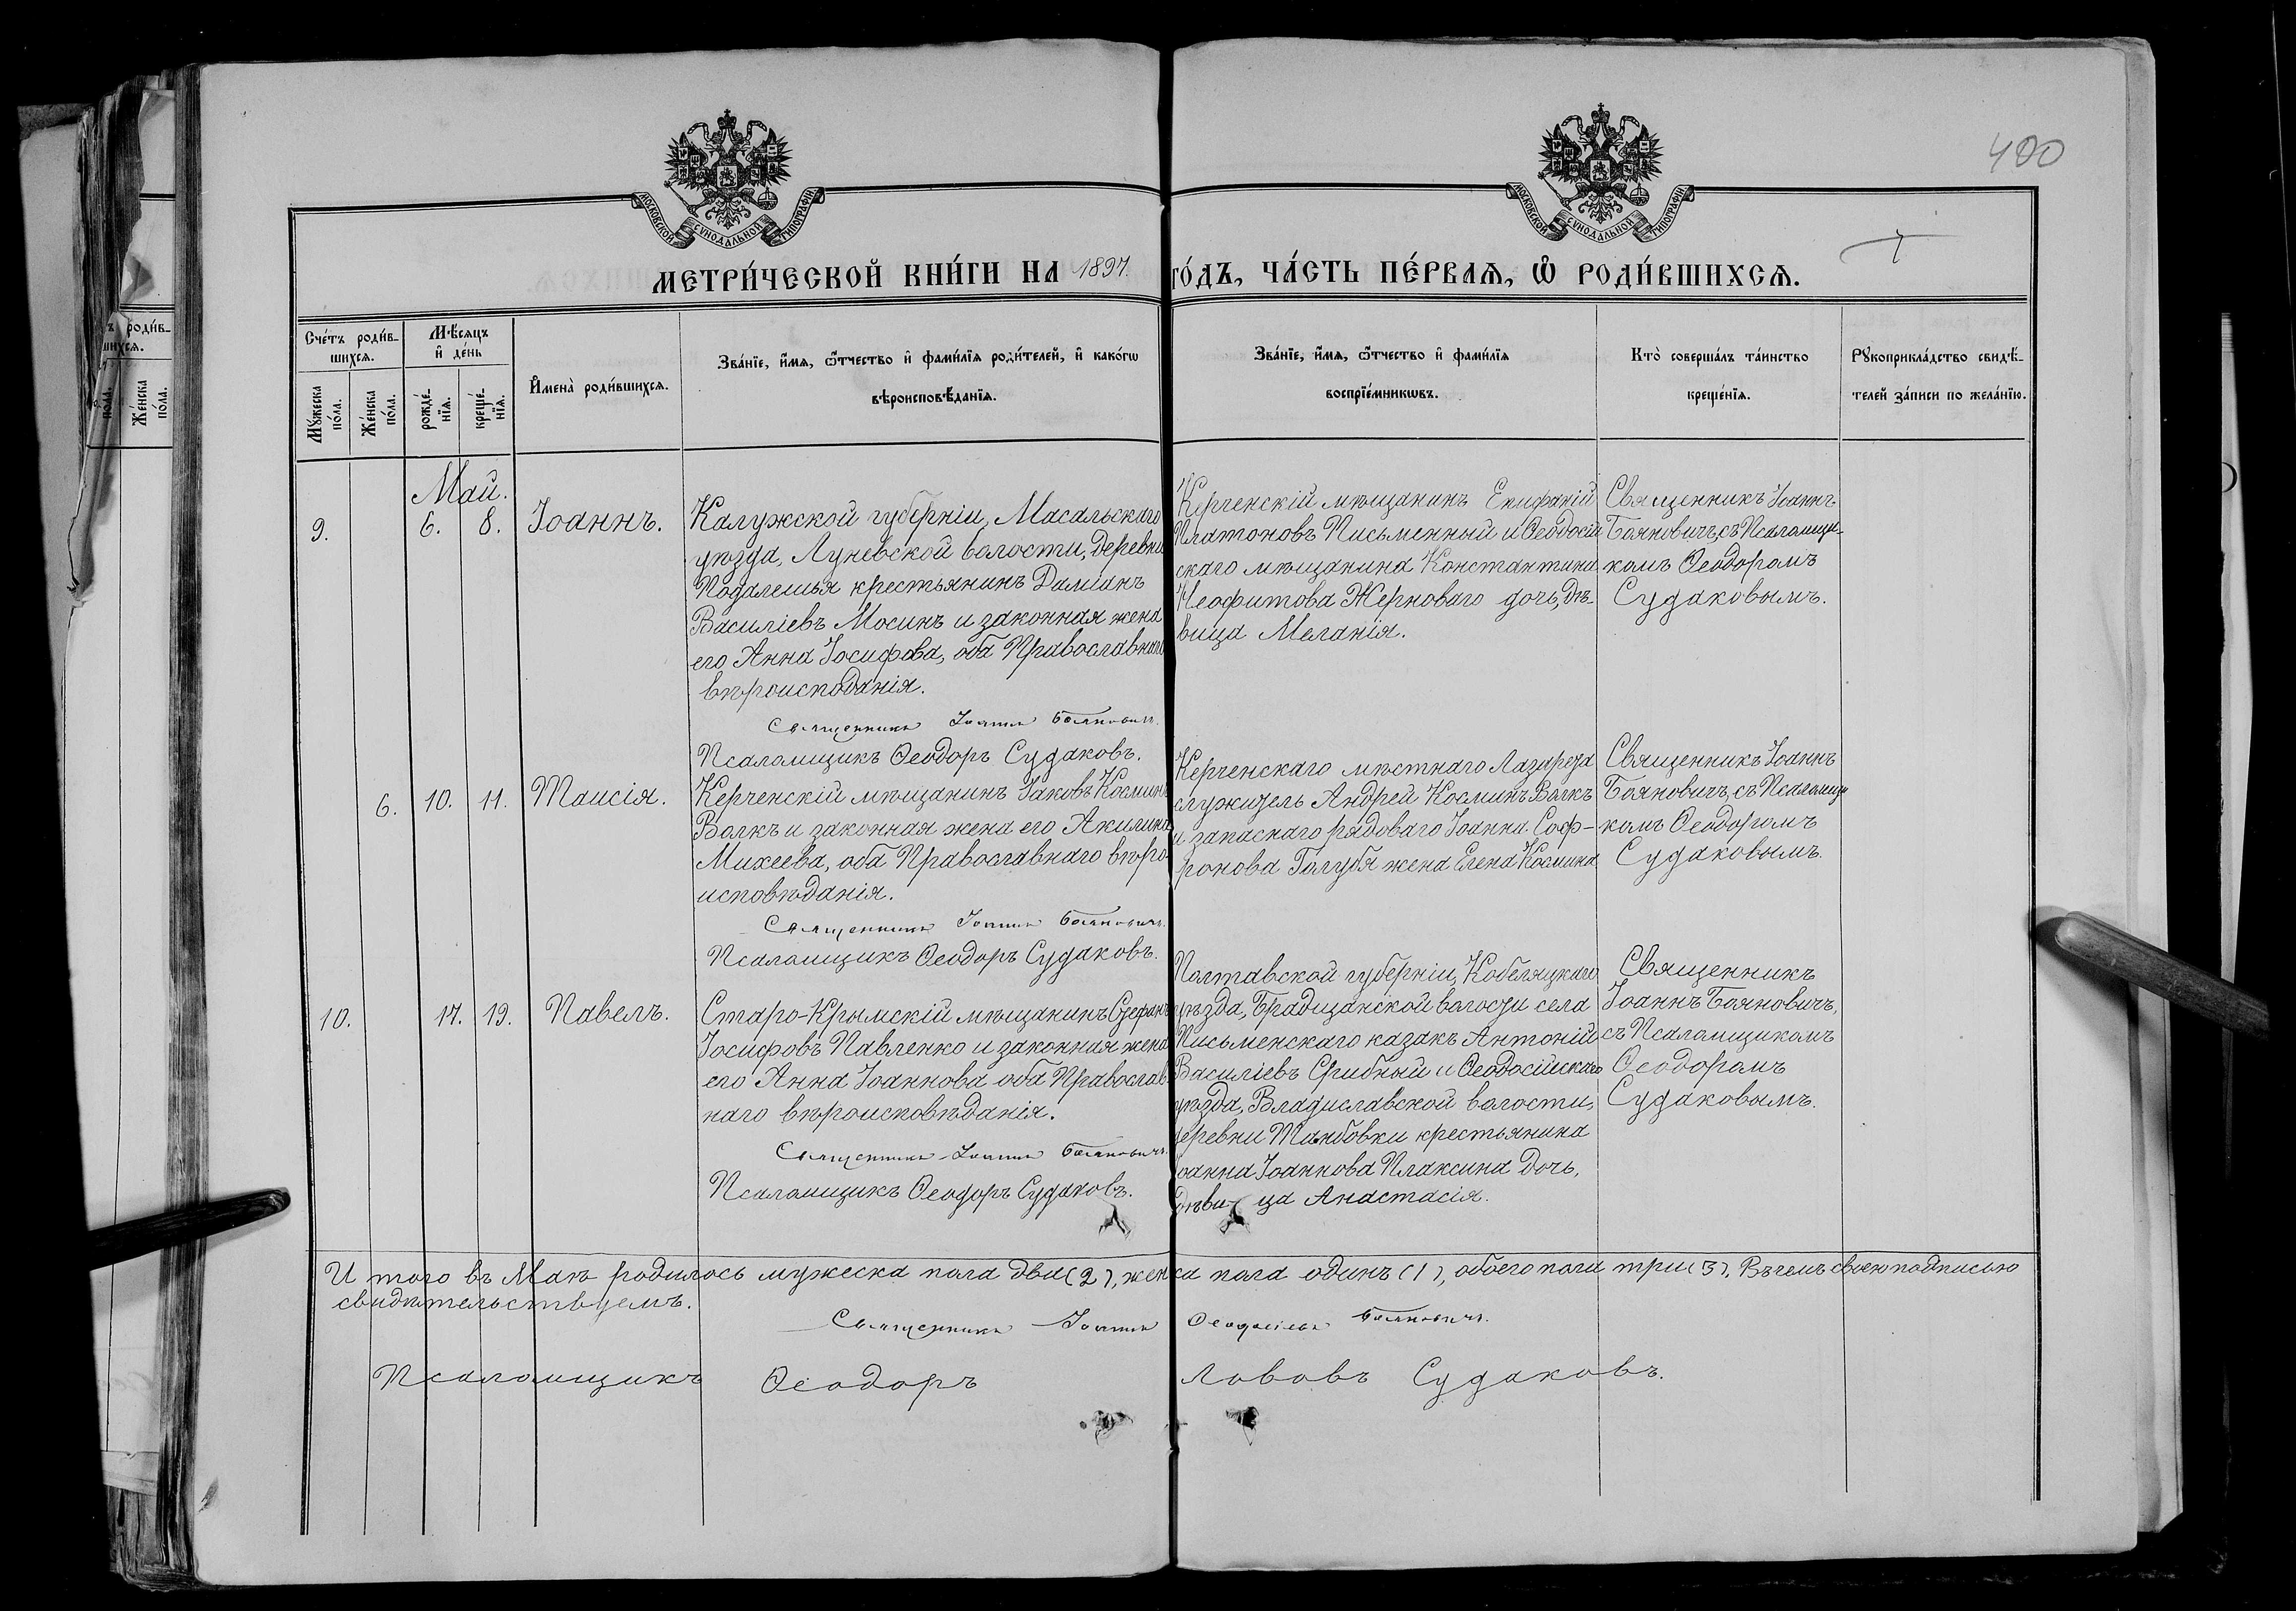 400
МОСКОВСКОЙ СѴНОДАЛЬНОЙ ТИПОГРАФІИ
МОСКОВСКОЙ СѴНОДАЛЬНОЙ ТИПОГРАФІИ
МЕТРИ́ЧЕСКОЙ КНИ́ГИ НА 1897. ГО́ДЪ, ЧА́СТЬ ПЕ́РВАѦ, Ѡ҆ РОДИ́ВШИХСѦ.
Сче́тъ роди́в-
шихсѧ.
Мꙋжеска
по́ла.
Же́нска
по́ла.
Мѣ́сѧцъ
и҆ де́нь
рожде́-
нїѧ.
креще́-
нїѧ.
И҆мена̀ роди́вшихсѧ.
Зва́нїе, и҆́мѧ, ѻ҆́тчество и҆ фами́лїѧ роди́телей, и҆ како́гѡ
вѣроисповѣ́данїѧ.
Зва́нїе, и҆́мѧ, ѻ҆́тчество и҆ фами́лїѧ
воспрїе́мникѡвъ.
Кто̀ соверша́лъ та́инство
креще́нїѧ.
Рꙋкоприкла́дство свидѣ́-
телей за́писи по жела́нїю.
Май.
9.
6.
8.
Іоаннъ.
Калужской губерніи, Масальскаго
уѣзда, Луневской волости, деревни
Подалешья крестьянинъ Даміанъ
Василіевъ Мосинъ и законная жена
его Анна Іосифова, оба Православнаго
вѣроисподанія.
Священникъ Іоаннъ Бояновичъ.
Псаломщикъ Ѳеодоръ Судаковъ.
Керченскій мѣщанинъ Епифаній
Платоновъ Письменный и Ѳеодосій
скаго мѣщанина Константина
Неофитова Жерноваго дочь, дѣ-
вица Меланія.
Священникъ Іоаннъ
Бояновичъ, съ Псаломщи-
комъ Ѳеодоромъ
Судаковымъ.
6.
10.
11.
Таисія.
Керченскій мѣщанинъ Іаковъ Косминъ
Волкъ и законная жена его Акилина
Михеева, оба Православнаго вѣро-
исповѣданія.
Священникъ Іоаннъ Бояновичъ.
Псаломщикъ Ѳеодоръ Судаковъ.
Керченскаго мѣстнаго Лазарета
служитель Андрей Косминъ Волкъ
и запаснаго рядоваго Іоанна Соф-
ронова Голубя жена Елена Космина
Священникъ Іоаннъ
Бояновичъ, съ Псаломщи
комъ Ѳеодоромъ
Судаковымъ.
10.
17.
19.
Павелъ.
Старо-Крымскій мѣщанинъ Стефанъ
Іосифовъ Павленко и законная жена
его Анна Іоаннова оба Православ
наго вѣроисковѣданія.
Священникъ Іоаннъ Бояновичъ.
Псаломщикъ Ѳеодоръ Судаковъ.
Полтавской губерніи, Кобеляцкаго
уѣзда, Брадщанской волости села
Письменскаго казакъ Антоній
Василіевъ Срибный и Ѳеодосійскаго
уѣзда, Владиславской волости,
деревни Тамбовки крестьянина
Іоанна Іоаннова Плаксина дочь,
дѣви- ца Анастасія.
Священникъ
Іоаннъ Бояновичъ,
съ Псаломщикомъ
Ѳеодоромъ
Судаковымъ.
И того въ Маѣ родилось мужеска пола два (2), женска пола одинъ (1), обоего пола три (3). Въ чемъ своею подписью
свидѣтельствуемъ.
Священникъ Іоаннъ Ѳеодосіевъ Бояновичъ.
Псаломщикъ Ѳеодоръ Лововъ Судаковъ.